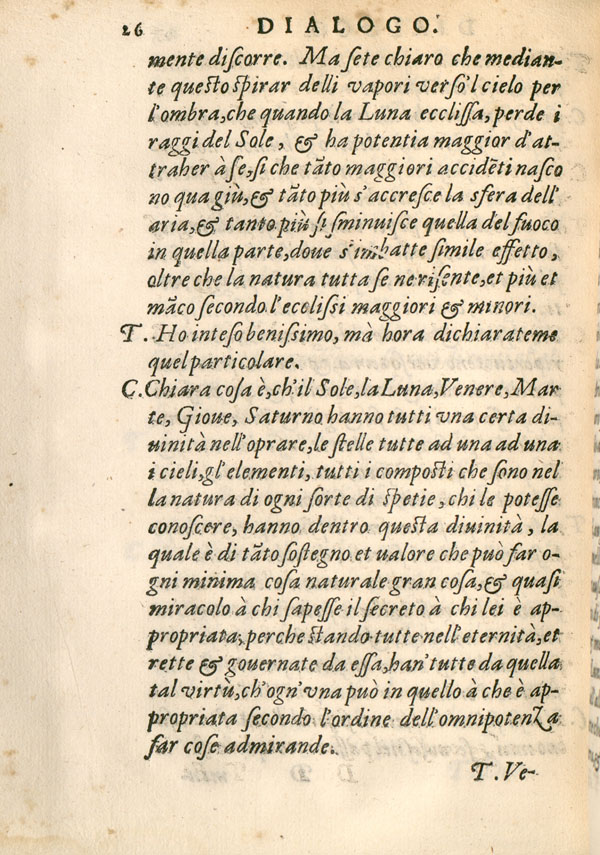 26 DIALOGO.
mente discorre. Ma sete chiaro che median-
te questo spirar delli vapori verso'l cielo per
l'ombra, che quando la Luna ecclissa, perde i
raggi del Sole, & ha potentia maggior d'at-
traher à se, si che tãto maggiori accidẽti nasco
no qua giù, & tãto più s'accresce la sfera dell'
aria, & tanto più si sminuisce quella del fuoco
in quella parte, doue s'imbatte simile effetto,
oltre che la natura tutta se ne risente, et più et
mãco secondo l'eclissi maggiori & minori.
T. Ho inteso benissimo, mà hora dichiarateme
quel particolare.
C. Chiara cosa è, ch'il Sole, la Luna, Venere, Mar
te, Gioue, Saturno hanno tutti vna certa di-
uinità nell'oprare, le stelle tutte ad una ad una
i cieli, gl'elementi, tutti i composti che sono nel
la natura di ogni sorte di spetie, chi le potesse
conoscere, hanno dentro questa diuinità, la
quale è di tãto sostegno et ualore che può far o-
gni minima cosa naturale gran cosa, & quasi
miracolo à chi sapesse il secreto à chi lei è ap-
propriata, perche stando tutte nell'eternità, et
rette & gouernate da essa, han'tutte da quella
tal virtù, ch'ogn'vna può in quello à che è ap-
propriata secondo l'ordine dell'omnipotenza
far cose admirande.
T. Ve-